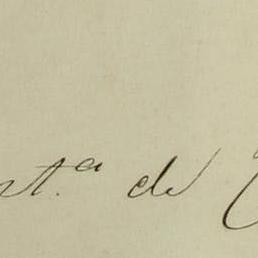 st.ª de